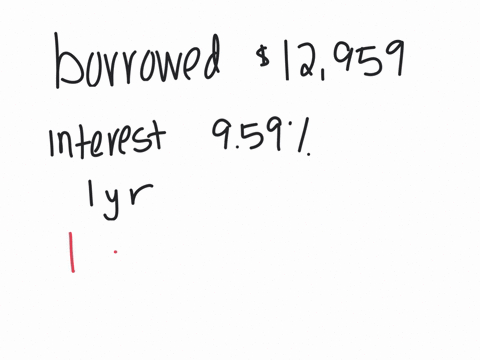 borrowed $12,959
interest 9.59%
1 yr
1 .